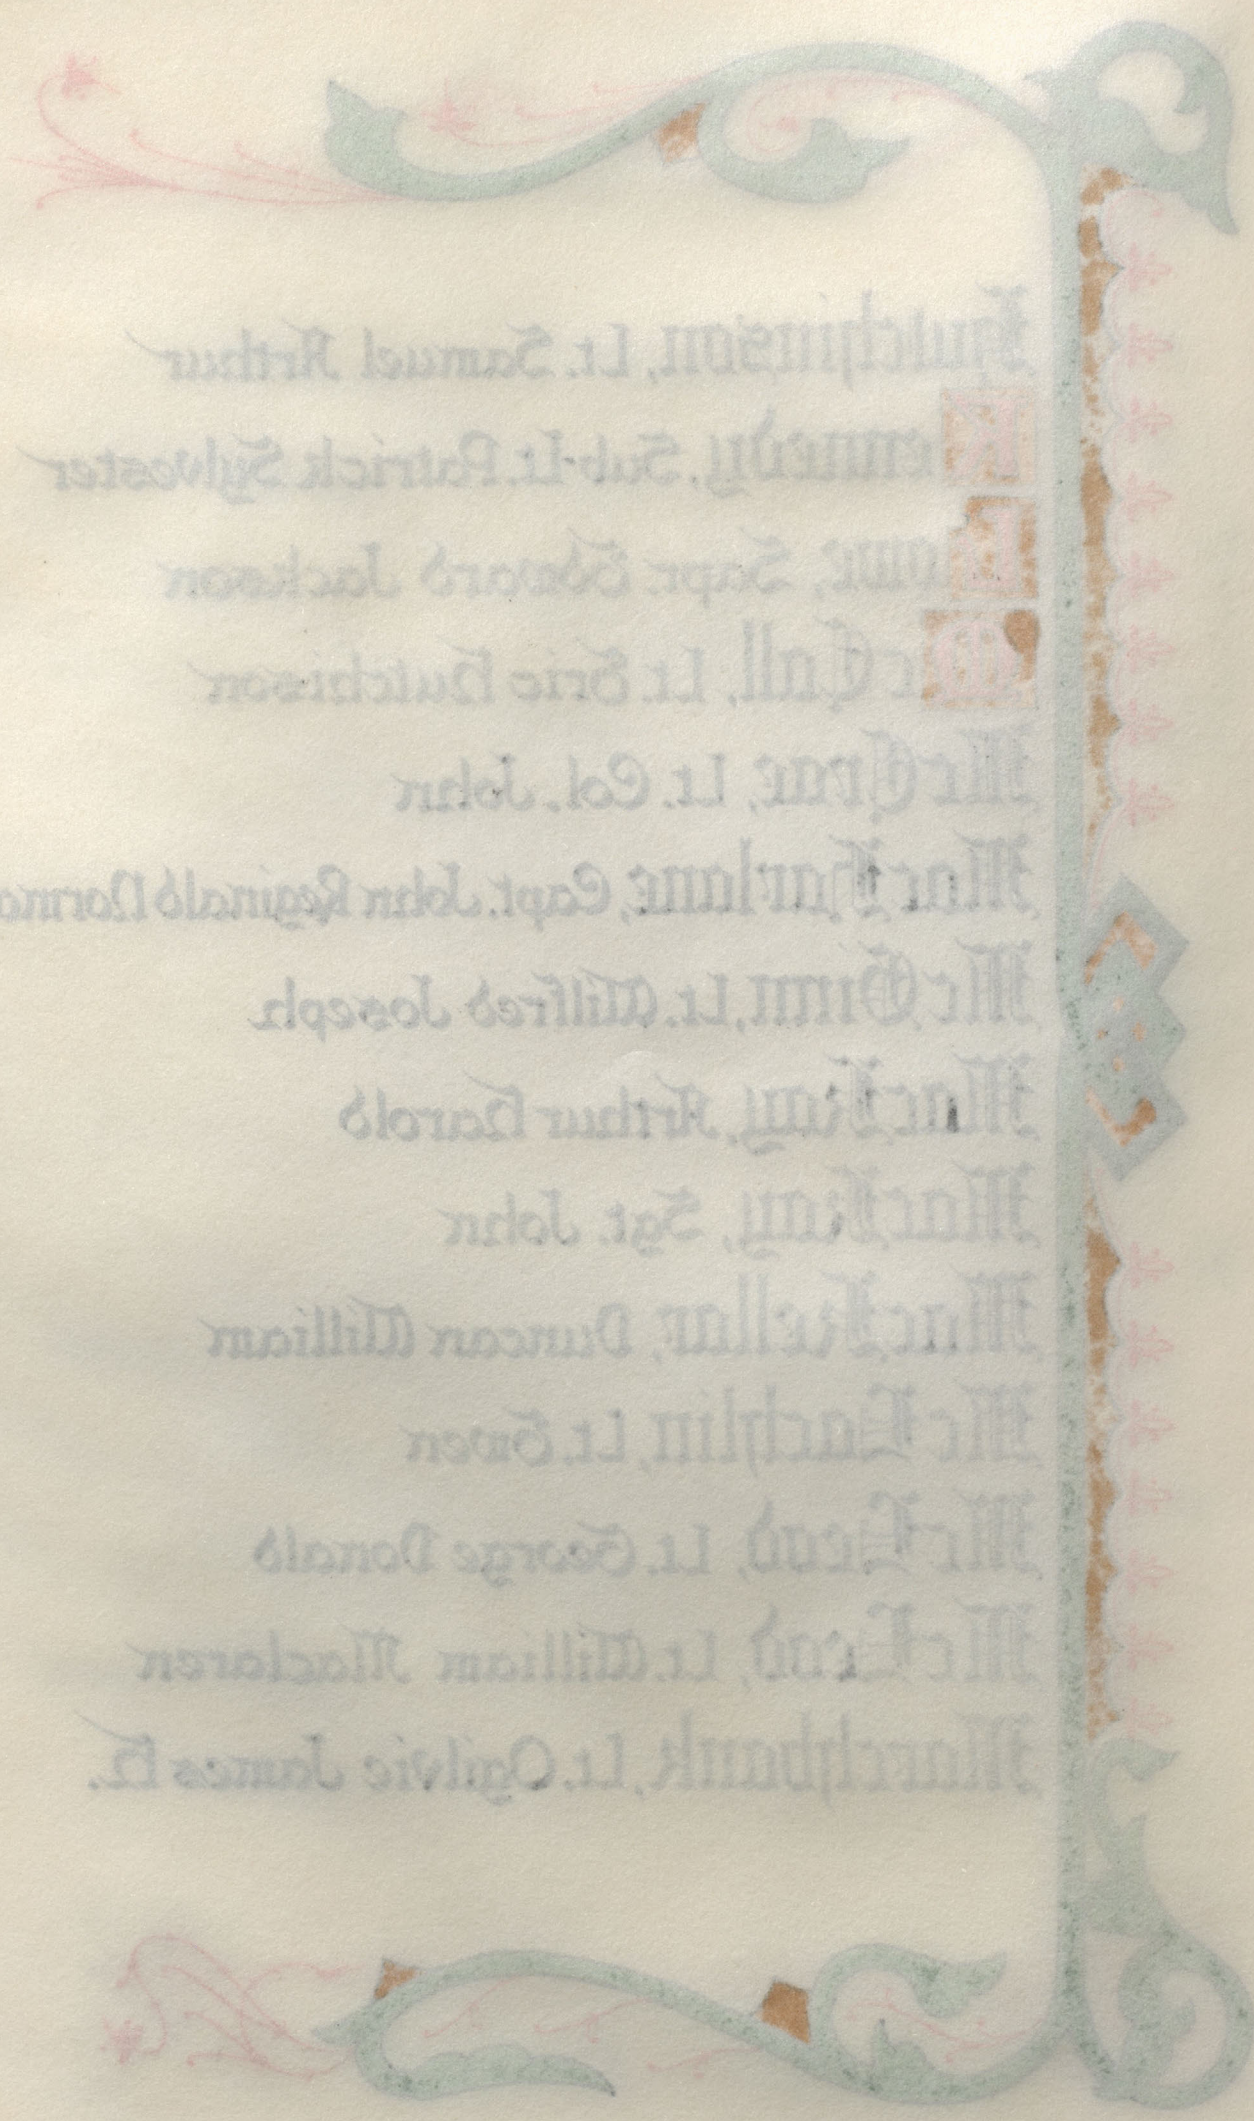 Hutchinson, Lt. Samuel Arthur
Kennedy, Sub-Lt. Patrick Sylvester
Lowe, Sapr. Edward Jackson
McCall, Lt. Eric Hutchison
McCrae, Lt. Col. John
MacFarlane, Capt. John Reginald Norma
McGinn, Lt. Wilfred Joseph
MacKay, Arthur Harold
MacKay, Sgt. John
MacKellar, Duncan William
McLachlin, Lt. Ewen
McLeod, Lt. George Donald
McLeod, Lt. William Maclaren
Marchbank, Lt. Ogilvie James H.